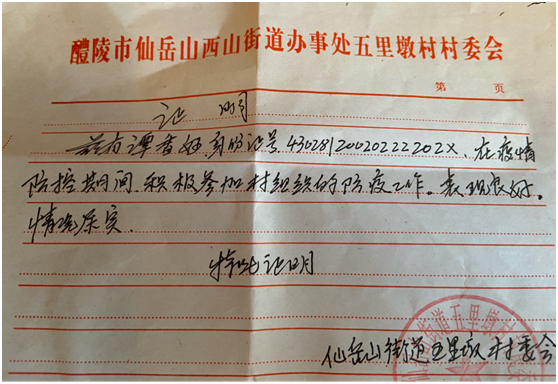 醴陵市仙岳山西山街道办事处五里墩村村委会
第 页
证 明
兹有谭香妤身份证号43028120020222202X、在疫情
防控期间、积极参加村组织的防疫工作。表现良好。
情况属实.
特此证明
街道五里墩村
仙岳山街道五里墩村委会